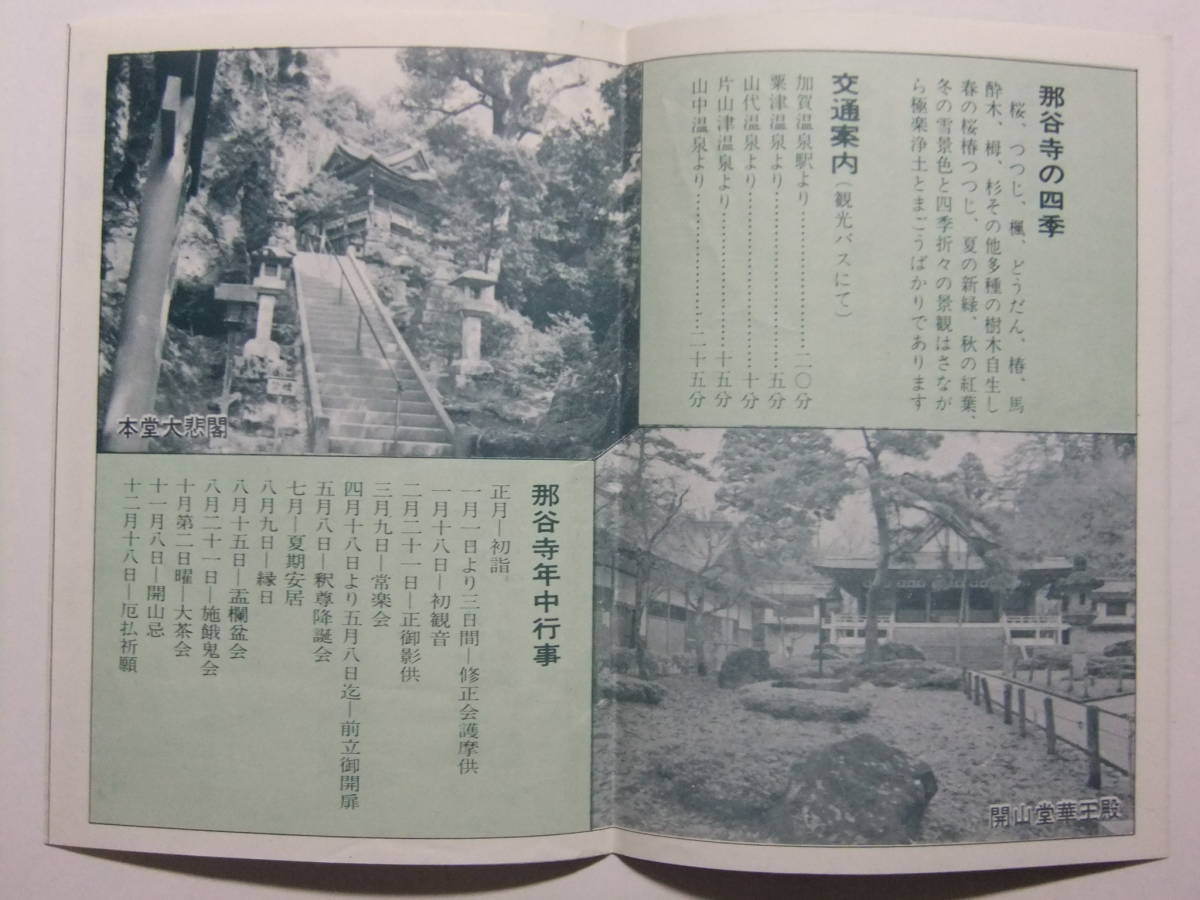 那谷寺の四季
桜、つつじ、楓、どうだん、椿、馬
酔木、栂、杉その他多種の樹木自生し
春の桜椿つつじ、夏の新緑、秋の紅葉、
冬の雪景色と四季折々の景観はさなが
ら極楽浄土とまごうばかりであります
交通案内(観光バスにて)
加賀温泉駅より…………………二〇分
粟津温泉より……………………五分
山代温泉より……………………十分
片山津温泉より…………………十五分
山中温泉より……………………二十五分
本堂大悲閣
開山堂華王殿
那谷寺年中行事
正月―初詣
一月一日より三日間―修正会護摩供
一月十八日―初観音
二月二十一日―正御影供
三月九日―常楽会
四月十八日より五月八日迄―前立御開扉
五月八日―釈尊降誕会
七月―夏期安居
八月九日―縁日
八月十五日―盂欄盆会
八月二十一日―施餓鬼会
十月第二日曜―大茶会
十一月八日―開山忌
十二月十八日―厄払祈願